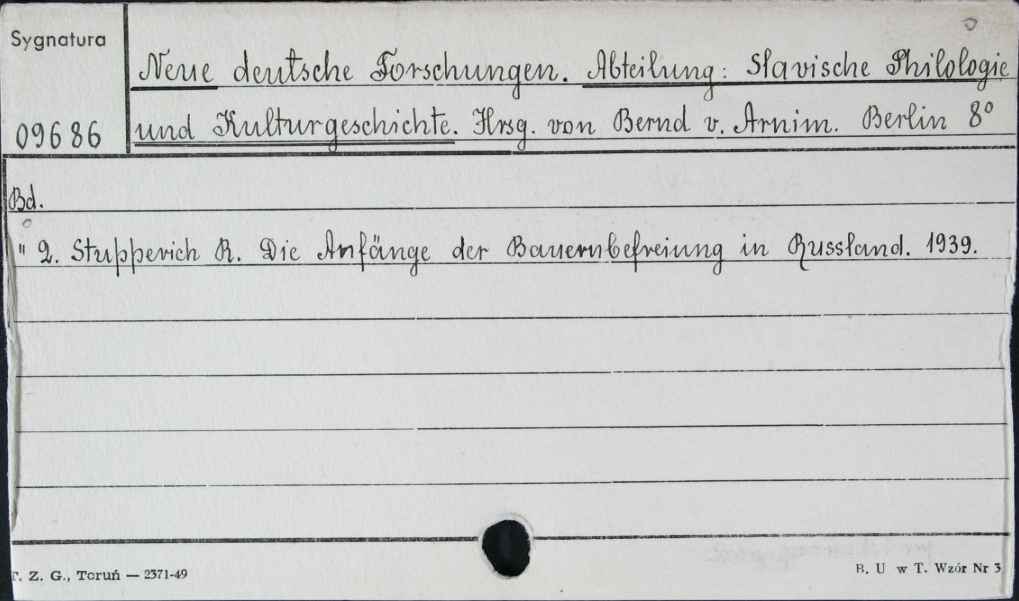 Sygnatura
09686
Neue deutsche Forschungen. Abteilung: Slavische Philologie
und Kulturgeschichte. Hrsg. von Bernd v. Arnim. Berlin 8°
Bd.
" 2. Stupperich R. Die Anfänge der Bauernbefreiung in Russland. 1939.
T. Z. G., Toruń — 2371-49
B. U w T. Wzór Nr 3